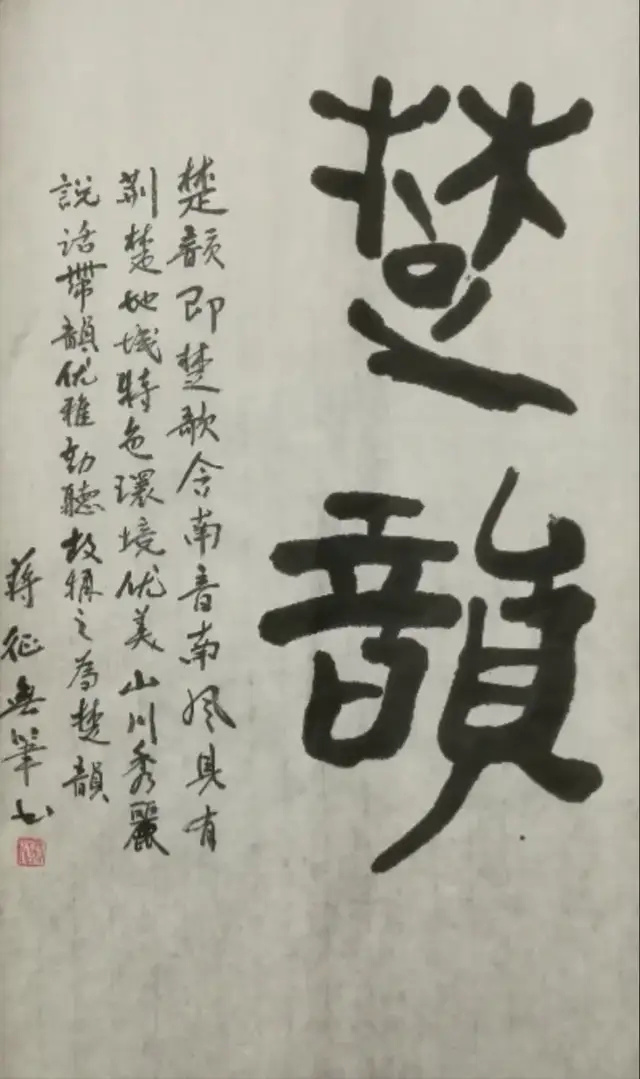 楚韻
楚韻即楚歌含南音南風具有
荆楚地域特色環境优美山川秀麗
說話帶韻优雅動聽故稱之為楚韻
蔣征無筆书